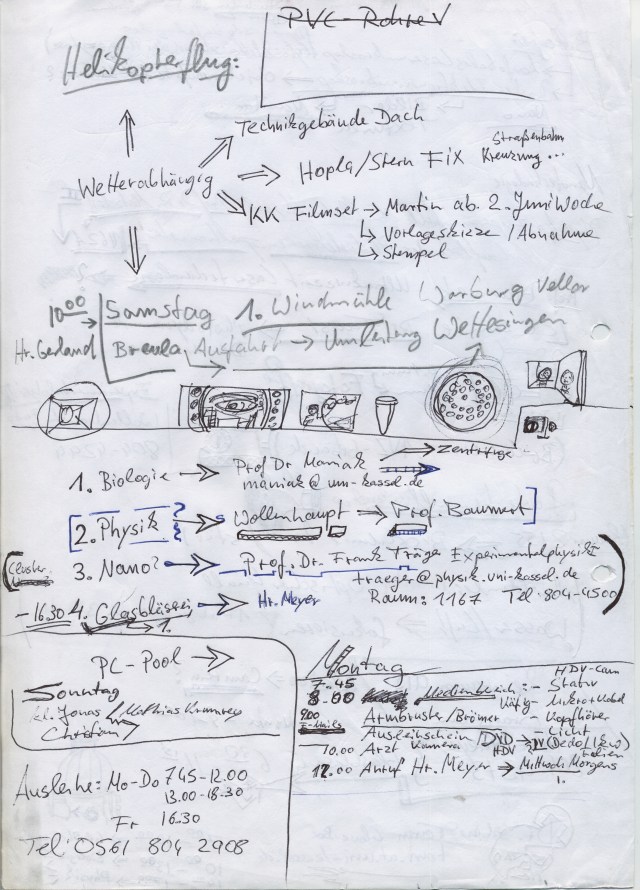 PVC-Rohre V
Helikopterflug:
Technikgebäude Dach
Wetterabhängig
Hopla/Stern Fix
Straßenbahn
Kreuzung ...
KK Filmset → Martin ab. 2. Juni Woche
↳ Vorlageskizze / Abnahme
↳ Stempel
10 00
Hr. Gerland
Samstag
1. Windmühle Warburg Vellor
Breula Ausfahrt → Umleitung Wettesingen
1. Biologie → Prof Dr Maniak → Zentrifuge
maniak@uni-kassel.de
[2. Physik → Wollenhaupt → Prof. Baumert]
(Cluster 3. Nano? → Prof. Dr. Frank Träger Experimentalphysik I
traeger@physik.uni-kassel.de
Raum: 1167 Tel. 804-4500)
-16.30 4. Glasbläserei → Hr. Meyer
→ 1.
PC-Pool →
Sonntag
Jonas / Mathias
Christian
Ausleihe: Mo-Do 745-12.00
13.00-18.30
Fr 16.30
Tel: 0561 804 2908
Montag
HDV-Cam
7.45
8.00 Medienbereich: - Stativ
- Mikro + Kabel
9.00 Armbruster/Brömer - Kopfhörer
E-Mails
Ausleihschein / DVD - Licht
10.00 Arzt Kamera HDV
12.00 Anruf Hr. Meyer → Mittwoch Morgens
1.